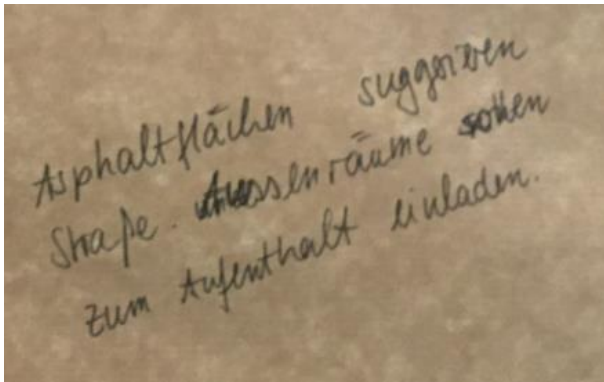 Asphaltflächen suggerieren
Straße. Aussenräume sollen
zum Aufenthalt einladen.